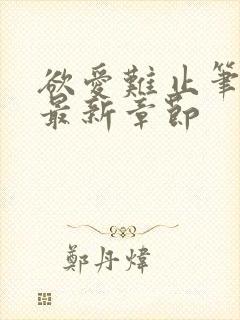 欲愛難止筆
最新章節
鄭丹煒